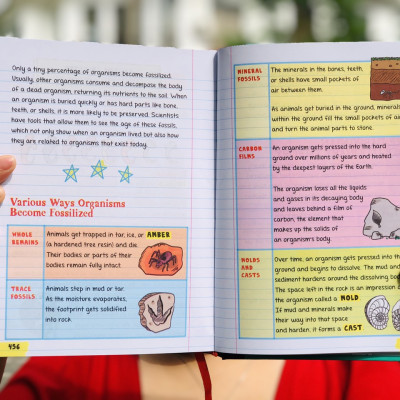 Only a tiny percentage of organisms become fossilized.
Usually, other organisms consume and decompose the body
of a dead organism, returning its nutrients to the soil. When
an organism is buried quickly or has hard parts like bone,
teeth, or shells, it is more likely to be preserved. Scientists
have tools that allow them to see the age of these fossils,
which not only show when an organism lived but also how
they are related to organisms that exist today.
Various Ways Organisms
Become Fossilized
WHOLE
REMAINS
Animals get trapped in tar, ice, or AMBER
(a hardened tree resin) and die.
Their bodies or parts of their
bodies remain fully intact.
TRACE
FOSSILS
Animals step in mud or tar.
As the moisture evaporates,
the footprint gets solidified
into rock.
456
MINERAL
FOSSILS
The minerals in the bones, teeth,
or shells have small pockets of
air between them.
As animals get buried in the ground, minerals
within the ground fill the small pockets of air
and turn the animal parts to stone.
CARBON
FILMS
An organism gets pressed into the hard
ground over millions of years and heated
by the deepest layers of the Earth.
The organism loses all the liquids
and gases in its decaying body
and leaves behind a film of
carbon, the element that
makes up the solids of
an organism's body.
MOLDS
AND
CASTS
Over time, an organism gets pressed into the
ground and begins to dissolve. The mud and
sediment hardens around the dissolving
The space left in the rock is an impression of
the organism called a MOLD.
If mud and minerals make
their way into that space
and harden, it forms a CAST.